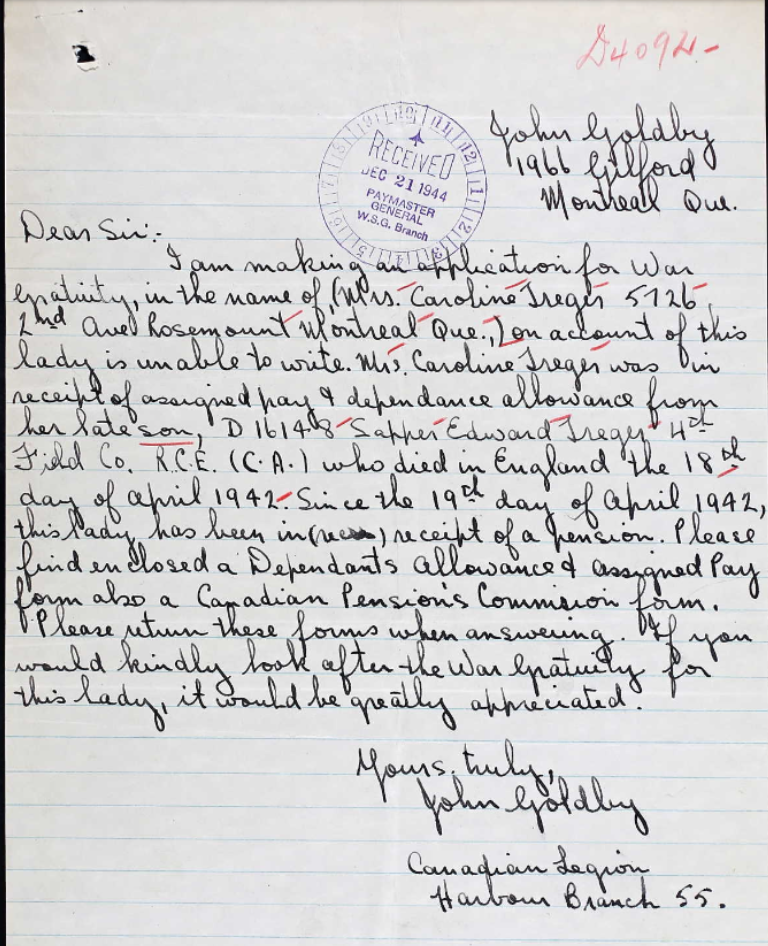 D4092-
John Goldby
1966 Gilford
Montreal Que.
RECEIVED
DEC 21 1944
PAYMASTER
GENERAL
W.S.G. Branch
Dear Sir:-
I am making an application for War
Gratuity, in the name of (Mrs. Caroline Treger 5726,
2nd Ave Rosemount Montreal Que.,) on account of this
lady is unable to write. Mrs. Caroline Treger was in
receipt of assigned pay & dependance allowance from
her late son, D 16148 Sapper Edward Treger 4th
Field Co. R.C.E. (C.A.) who died in England the 18th
day of April 1942. Since the 19th day of April 1942,
this lady has been in receipt of a pension. Please
find enclosed a Dependant's Allowance & assigned Pay
form also a Canadian Pension's Commision form.
Please return these forms when answering. If you
would kindly look after the War Gratuity for
this lady, it would be greatly appreciated.
Yours truly,
John Goldby
Canadian Legion
Harbour Branch 55.